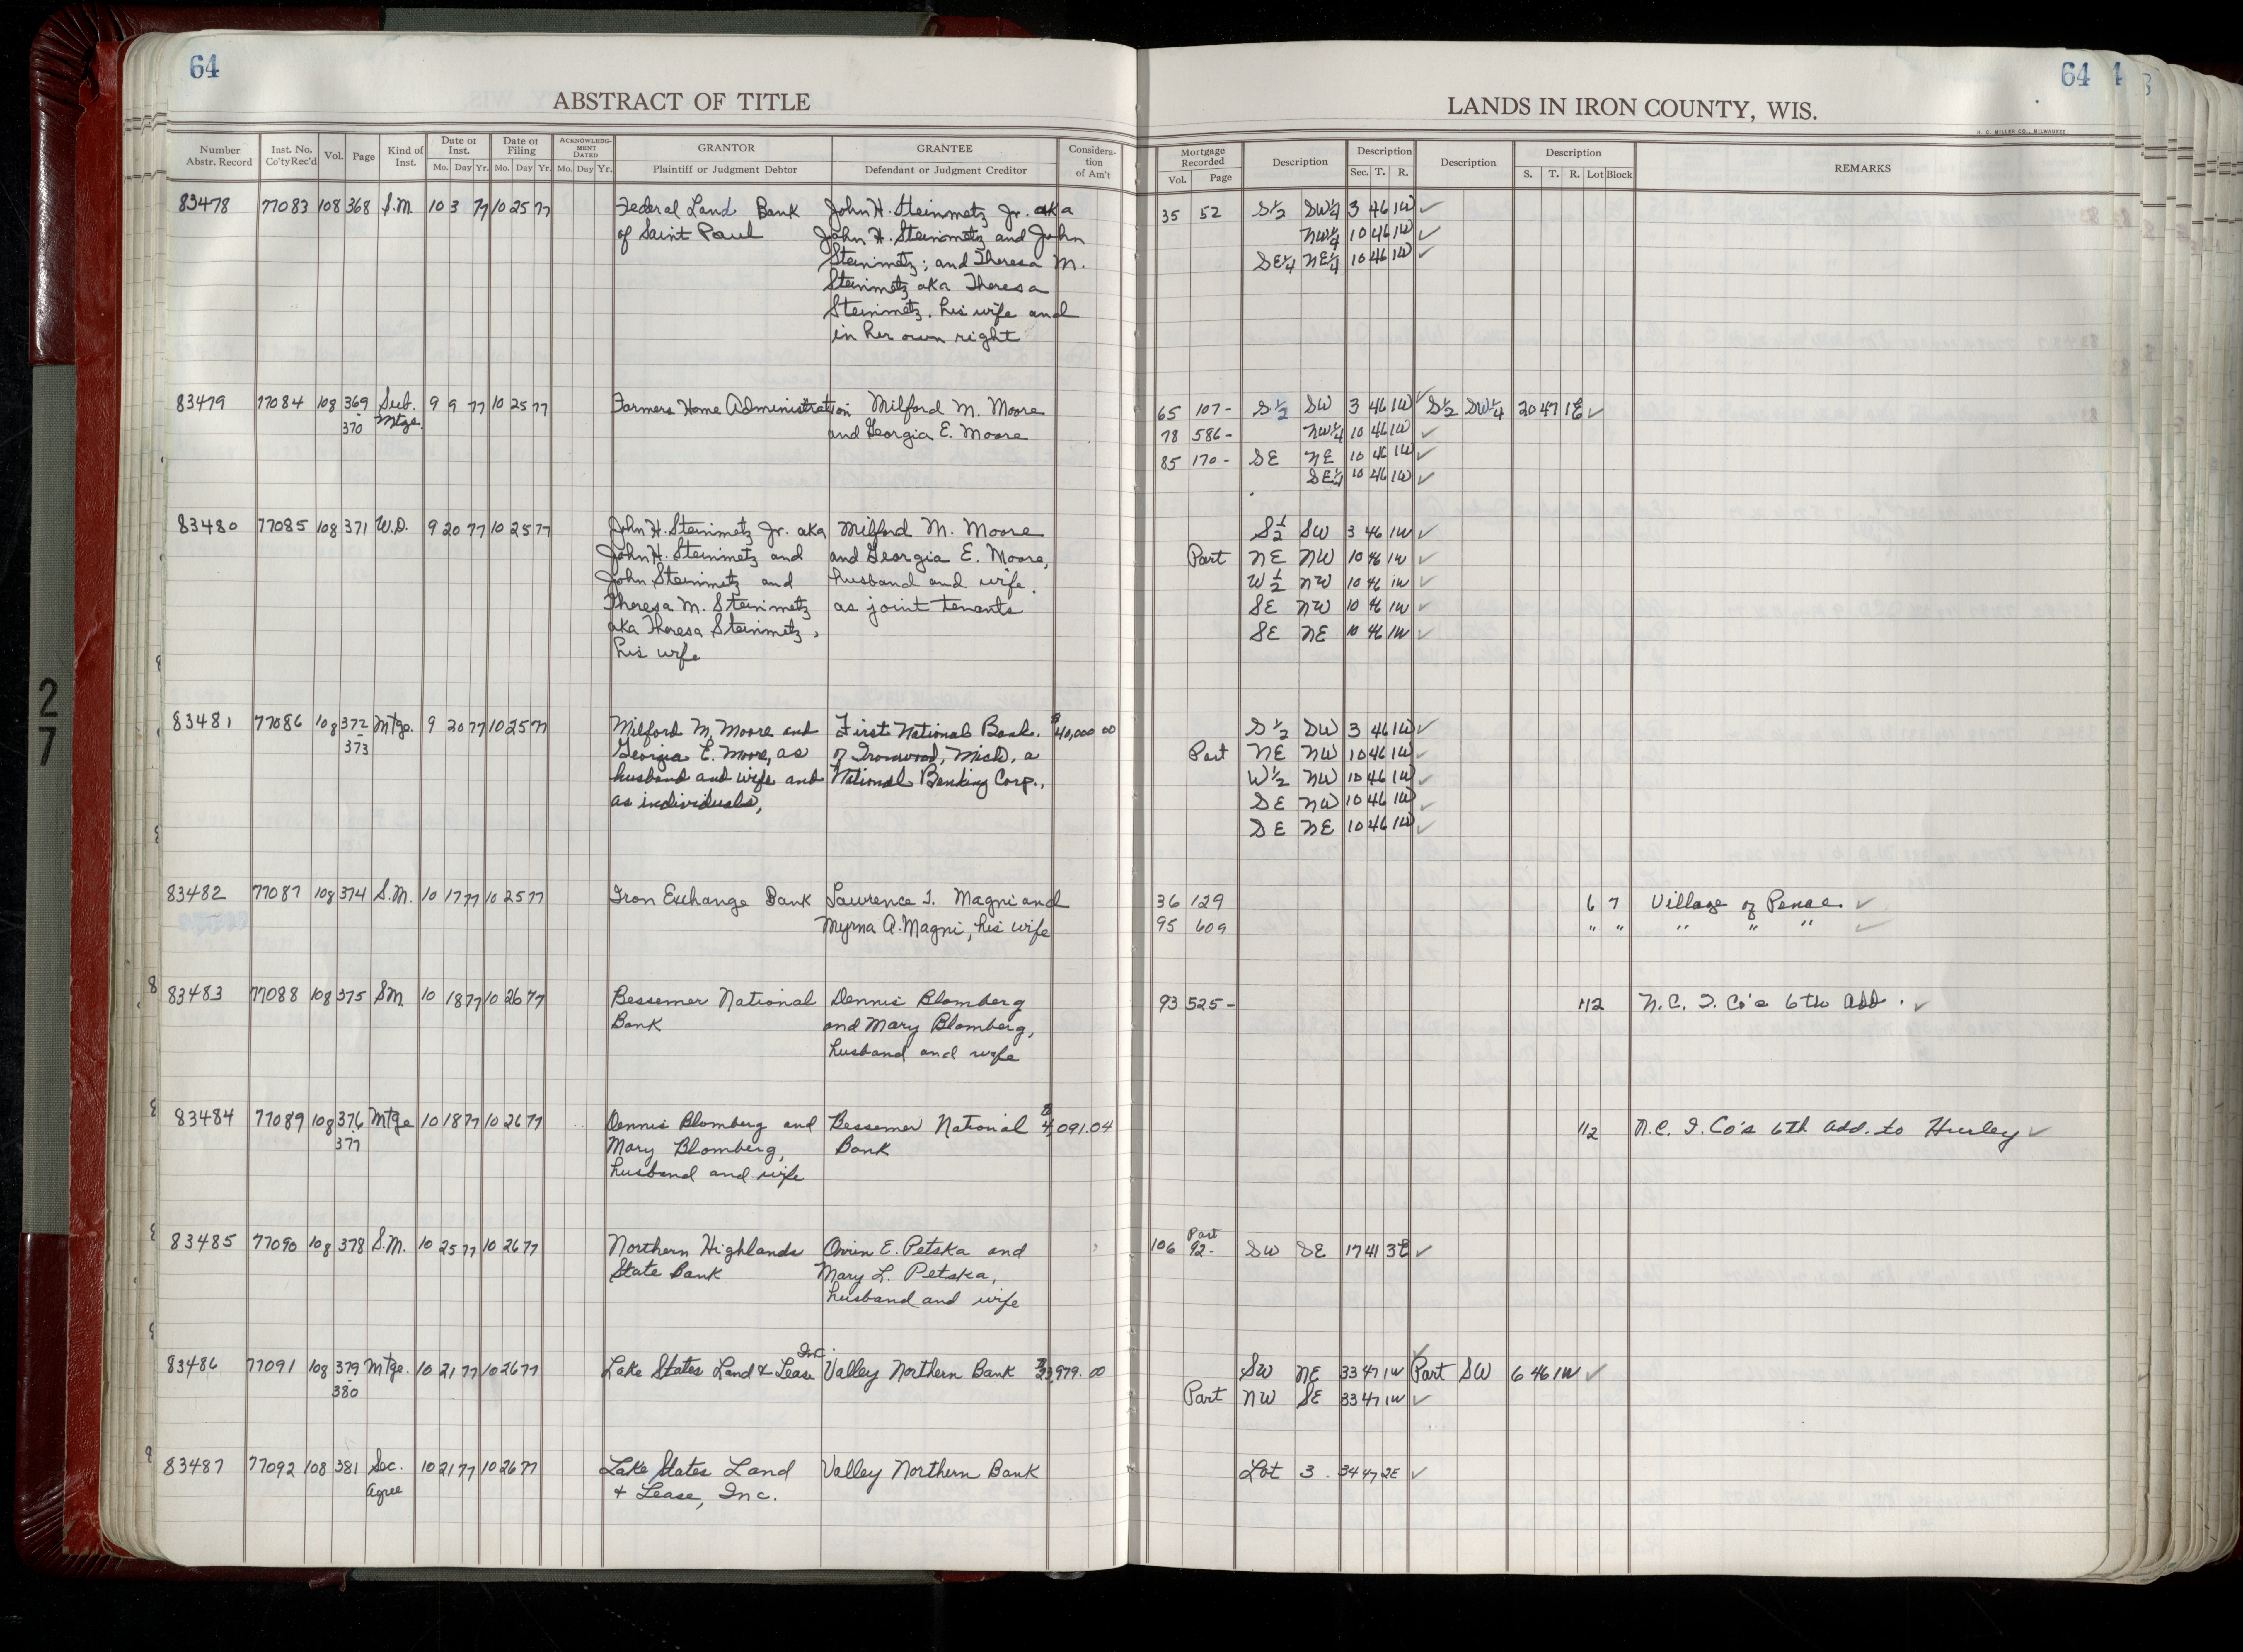 64
ABSTRACT OF TITLE
64
LANDS IN IRON COUNTY, WIS.
H. C. MILLER CO., MILWAUKEE
Number Abstr. Record | Inst. No. Co'ty Rec'd | Vol. | Page | Kind of Inst. | Date of Inst. Mo. Day Yr. | Date of Filing Mo. Day Yr. | ACKNOWLEDGMENT DATED Mo. Day Yr. | GRANTOR Plaintiff or Judgment Debtor | GRANTEE Defendant or Judgment Creditor | Consideration of Am't | Mortgage Recorded Vol. Page | Description | Description Sec. T. R. | Description | Description S. T. R. Lot Block | REMARKS
83478 77083 108 368 S.M. 10 3 77 10 25 77 Federal Land Bank John H. Steinmetz Jr. aka 35 52 S½ SW¼ 3 46 1W ✓
of Saint Paul John H. Steinmetz and John NW¼ 10 46 1W ✓
Steinmetz; and Theresa M. SE¼ NE¼ 10 46 1W ✓
Steinmetz aka Theresa
Steinmetz, his wife and
in her own right
83479 77084 108 369 Sub. 9 9 77 10 25 77 Farmers Home Administration Milford M. Moore 65 107- S½ SW 3 46 1W ✓ S½ SW¼ 20 47 1E ✓
- 370 Mtge. and Georgia E. Moore 78 586- NW¼ 10 46 1W ✓
85 170- SE NE 10 46 1W ✓
SE¼ 10 46 1W ✓
83480 77085 108 371 W.D. 9 20 77 10 25 77 John H. Steinmetz Jr. aka Milford M. Moore S½ SW 3 46 1W ✓
John H. Steinmetz and and Georgia E. Moore, Part NE NW 10 46 1W ✓
John Steinmetz and husband and wife W½ NW 10 46 1W ✓
Theresa M. Steinmetz as joint tenants SE NW 10 46 1W ✓
aka Theresa Steinmetz, SE NE 10 46 1W ✓
his wife
83481 77086 108 372 Mtge. 9 20 77 10 25 77 Milford M. Moore and First National Bank $40,000 00 S½ SW 3 46 1W ✓
- 373 Georgia E. Moore, as of Ironwood, Mich, a Part NE NW 10 46 1W ✓
husband and wife and National Banking Corp., W½ NW 10 46 1W ✓
as individuals, SE NW 10 46 1W ✓
SE NE 10 46 1W ✓
83482 77087 108 374 S.M. 10 17 77 10 25 77 Iron Exchange Bank Lawrence I. Magni and 36 129 6 7 Village of Pence ✓
Myrna A. Magni, his wife 95 609 " " " " " ✓
83483 77088 108 375 S.M. 10 18 77 10 26 77 Bessemer National Dennis Blomberg 93 525- 1 12 N.C.I. Co's 6th Add. ✓
Bank and Mary Blomberg,
husband and wife
83484 77089 108 376 Mtge 10 18 77 10 26 77 Dennis Blomberg and Bessemer National $4,091.04 1 12 N.C.I. Co's 6th Add. to Hurley ✓
377 Mary Blomberg, Bank
husband and wife
83485 77090 108 378 S.M. 10 25 77 10 26 77 Northern Highlands Orrin E. Petska and 106 Part 92- SW SE 17 41 3E ✓
State Bank Mary L. Petska,
husband and wife
83486 77091 108 379 Mtge. 10 21 77 10 26 77 Lake States Land & Lease Inc. Valley Northern Bank 979.00 SW NE 33 47 1W Part SW 6 46 1W ✓
- 380 Part NW SE 33 47 1W ✓
83487 77092 108 381 Sec. 10 21 77 10 26 77 Lake States Land Valley Northern Bank Lot 3. 34 47 2E ✓
Agree & Lease, Inc.
27